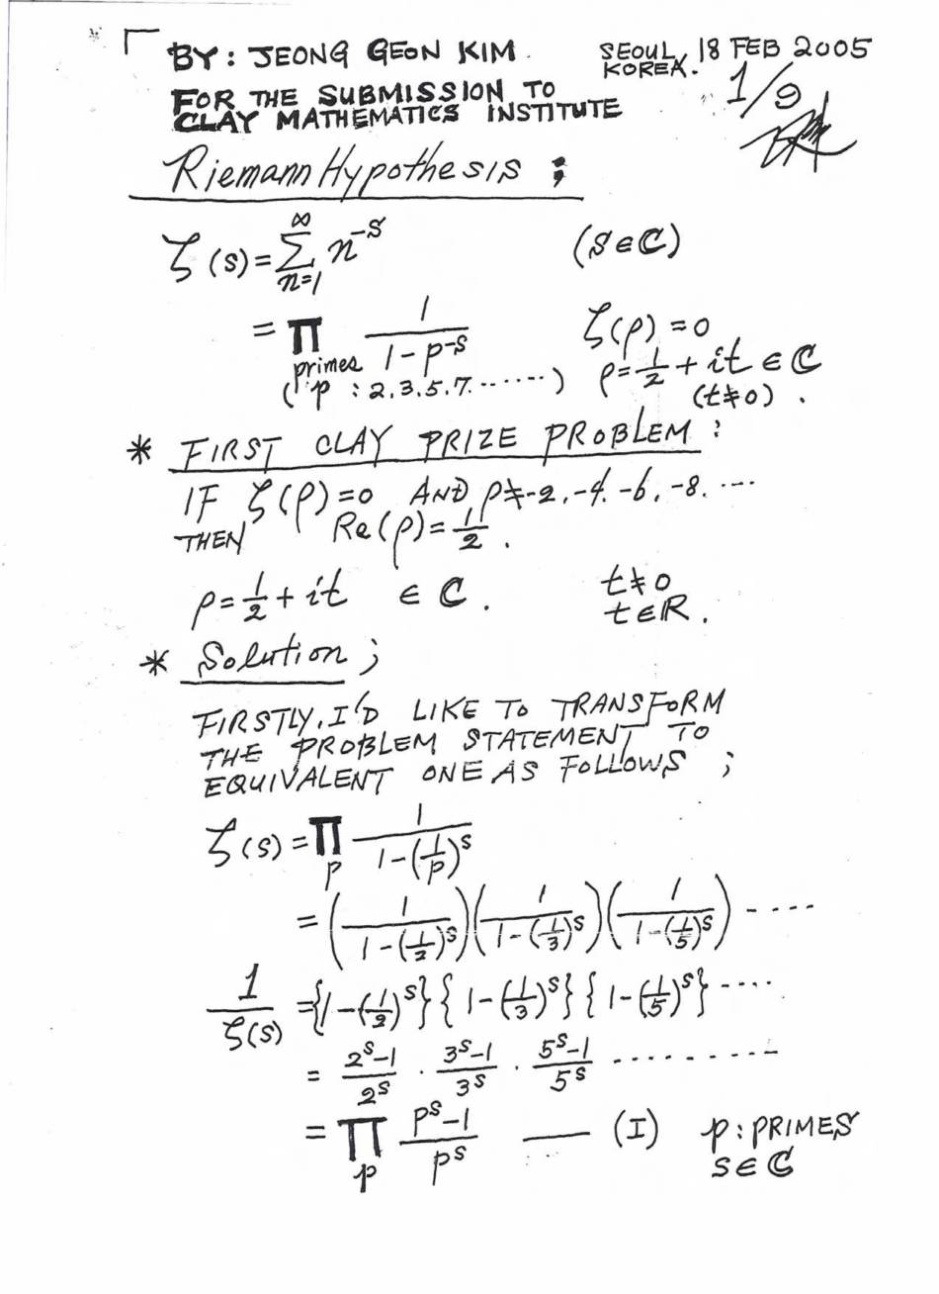 BY: JEONG GEON KIM. SEOUL, 18 FEB 2005
KOREA.
FOR THE SUBMISSION TO 1/9
CLAY MATHEMATICS INSTITUTE
Riemann Hypothesis :
ζ(s) = ∑_{n=1}^{∞} n^{-s} (s ∈ ℂ)
= ∏ 1/(1 - p^{-s}) ζ(ρ) = 0
primes ρ = 1/2 + it ∈ ℂ
( p : 2, 3, 5, 7. ······· ) (t ≠ 0) .
* FIRST CLAY PRIZE PROBLEM :
IF ζ(ρ) = 0 AND ρ ≠ -2, -4, -6, -8. ····
THEN Re(ρ) = 1/2 .
ρ = 1/2 + it ∈ ℂ . t ≠ 0
t ∈ R .
* Solution ;
FIRSTLY, I'D LIKE TO TRANSFORM
THE PROBLEM STATEMENT TO
EQUIVALENT ONE AS FOLLOWS ;
ζ(s) = ∏_p 1/(1 - (1/p)^s)
= (1/(1 - (1/2)^s)) (1/(1 - (1/3)^s)) (1/(1 - (1/5)^s)) ····
1/ζ(s) = {1 - (1/2)^s} {1 - (1/3)^s} {1 - (1/5)^s} ····
= (2^s - 1)/2^s · (3^s - 1)/3^s · (5^s - 1)/5^s ··········
= ∏_p (p^s - 1)/p^s —— (I) p : PRIMES
s ∈ ℂ